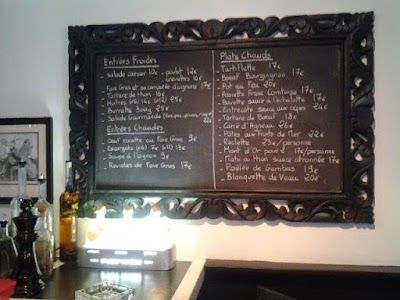 Entrées Froides
Salade caesar 10€ - poulet 12€
crevettes 16€
Foie Gras et sa compotée d'oignons 17€
Tartare de thon 16€
Huîtres (x6) 14€ (x12) 25€
Burratta 300g 25€
Salade Gourmande
Entrées Chaudes
Oeuf cocotte au Foie Gras 9€
Escargots (x6) 7€ (x12) 13€
Soupe à l'oignon 9€
Ravioles de Foie Gras 17€
Plats Chauds
Tartiflette 17€
Boeuf Bourguignon 17€
Pot au Feu 20€
Bavette sauce à l'échalotte 17€
Entrecôte sauce aux cèpes 24€
Tartare de Boeuf 18€
Carré d'Agneau 26€
Pâtes aux fruits de Mer 22€
Raclette 23€/personne
Mont d'Or pour 2 17€/personne
Mahi au thon sauce citronnée 17€
Poêlée de Gambas 19€
Blanquette de Veau 20€